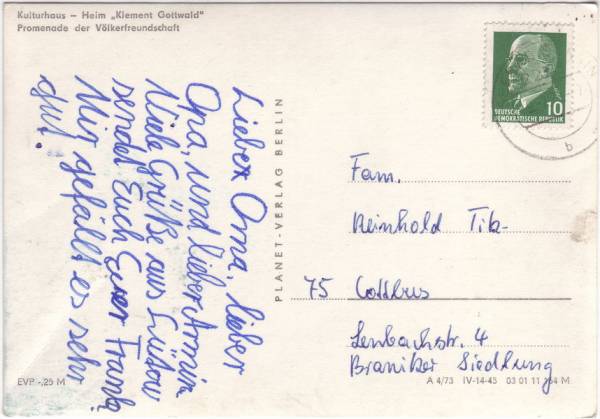 Kulturhaus – Heim „Klement Gottwald"
Promenade der Völkerfreundschaft
Lieber Oma, lieber
Opa, und lieber Armin
Viele Grüße aus Lütow
sendet Euch Euer Frank.
Mir gefällt es sehr
gut.
PLANET-VERLAG BERLIN
DEUTSCHE
DEMOKRATISCHE REPUBLIK
10
b
Fam.
Reinhold
75 Cottbus
Lenbachstr. 4
Braniker Siedlung
EVP -,25 M
A 4/73 IV-14-45 03 01 11 164 M